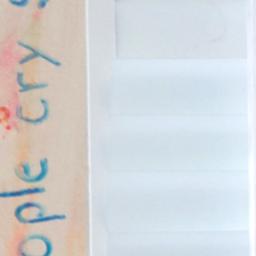 ople cry s